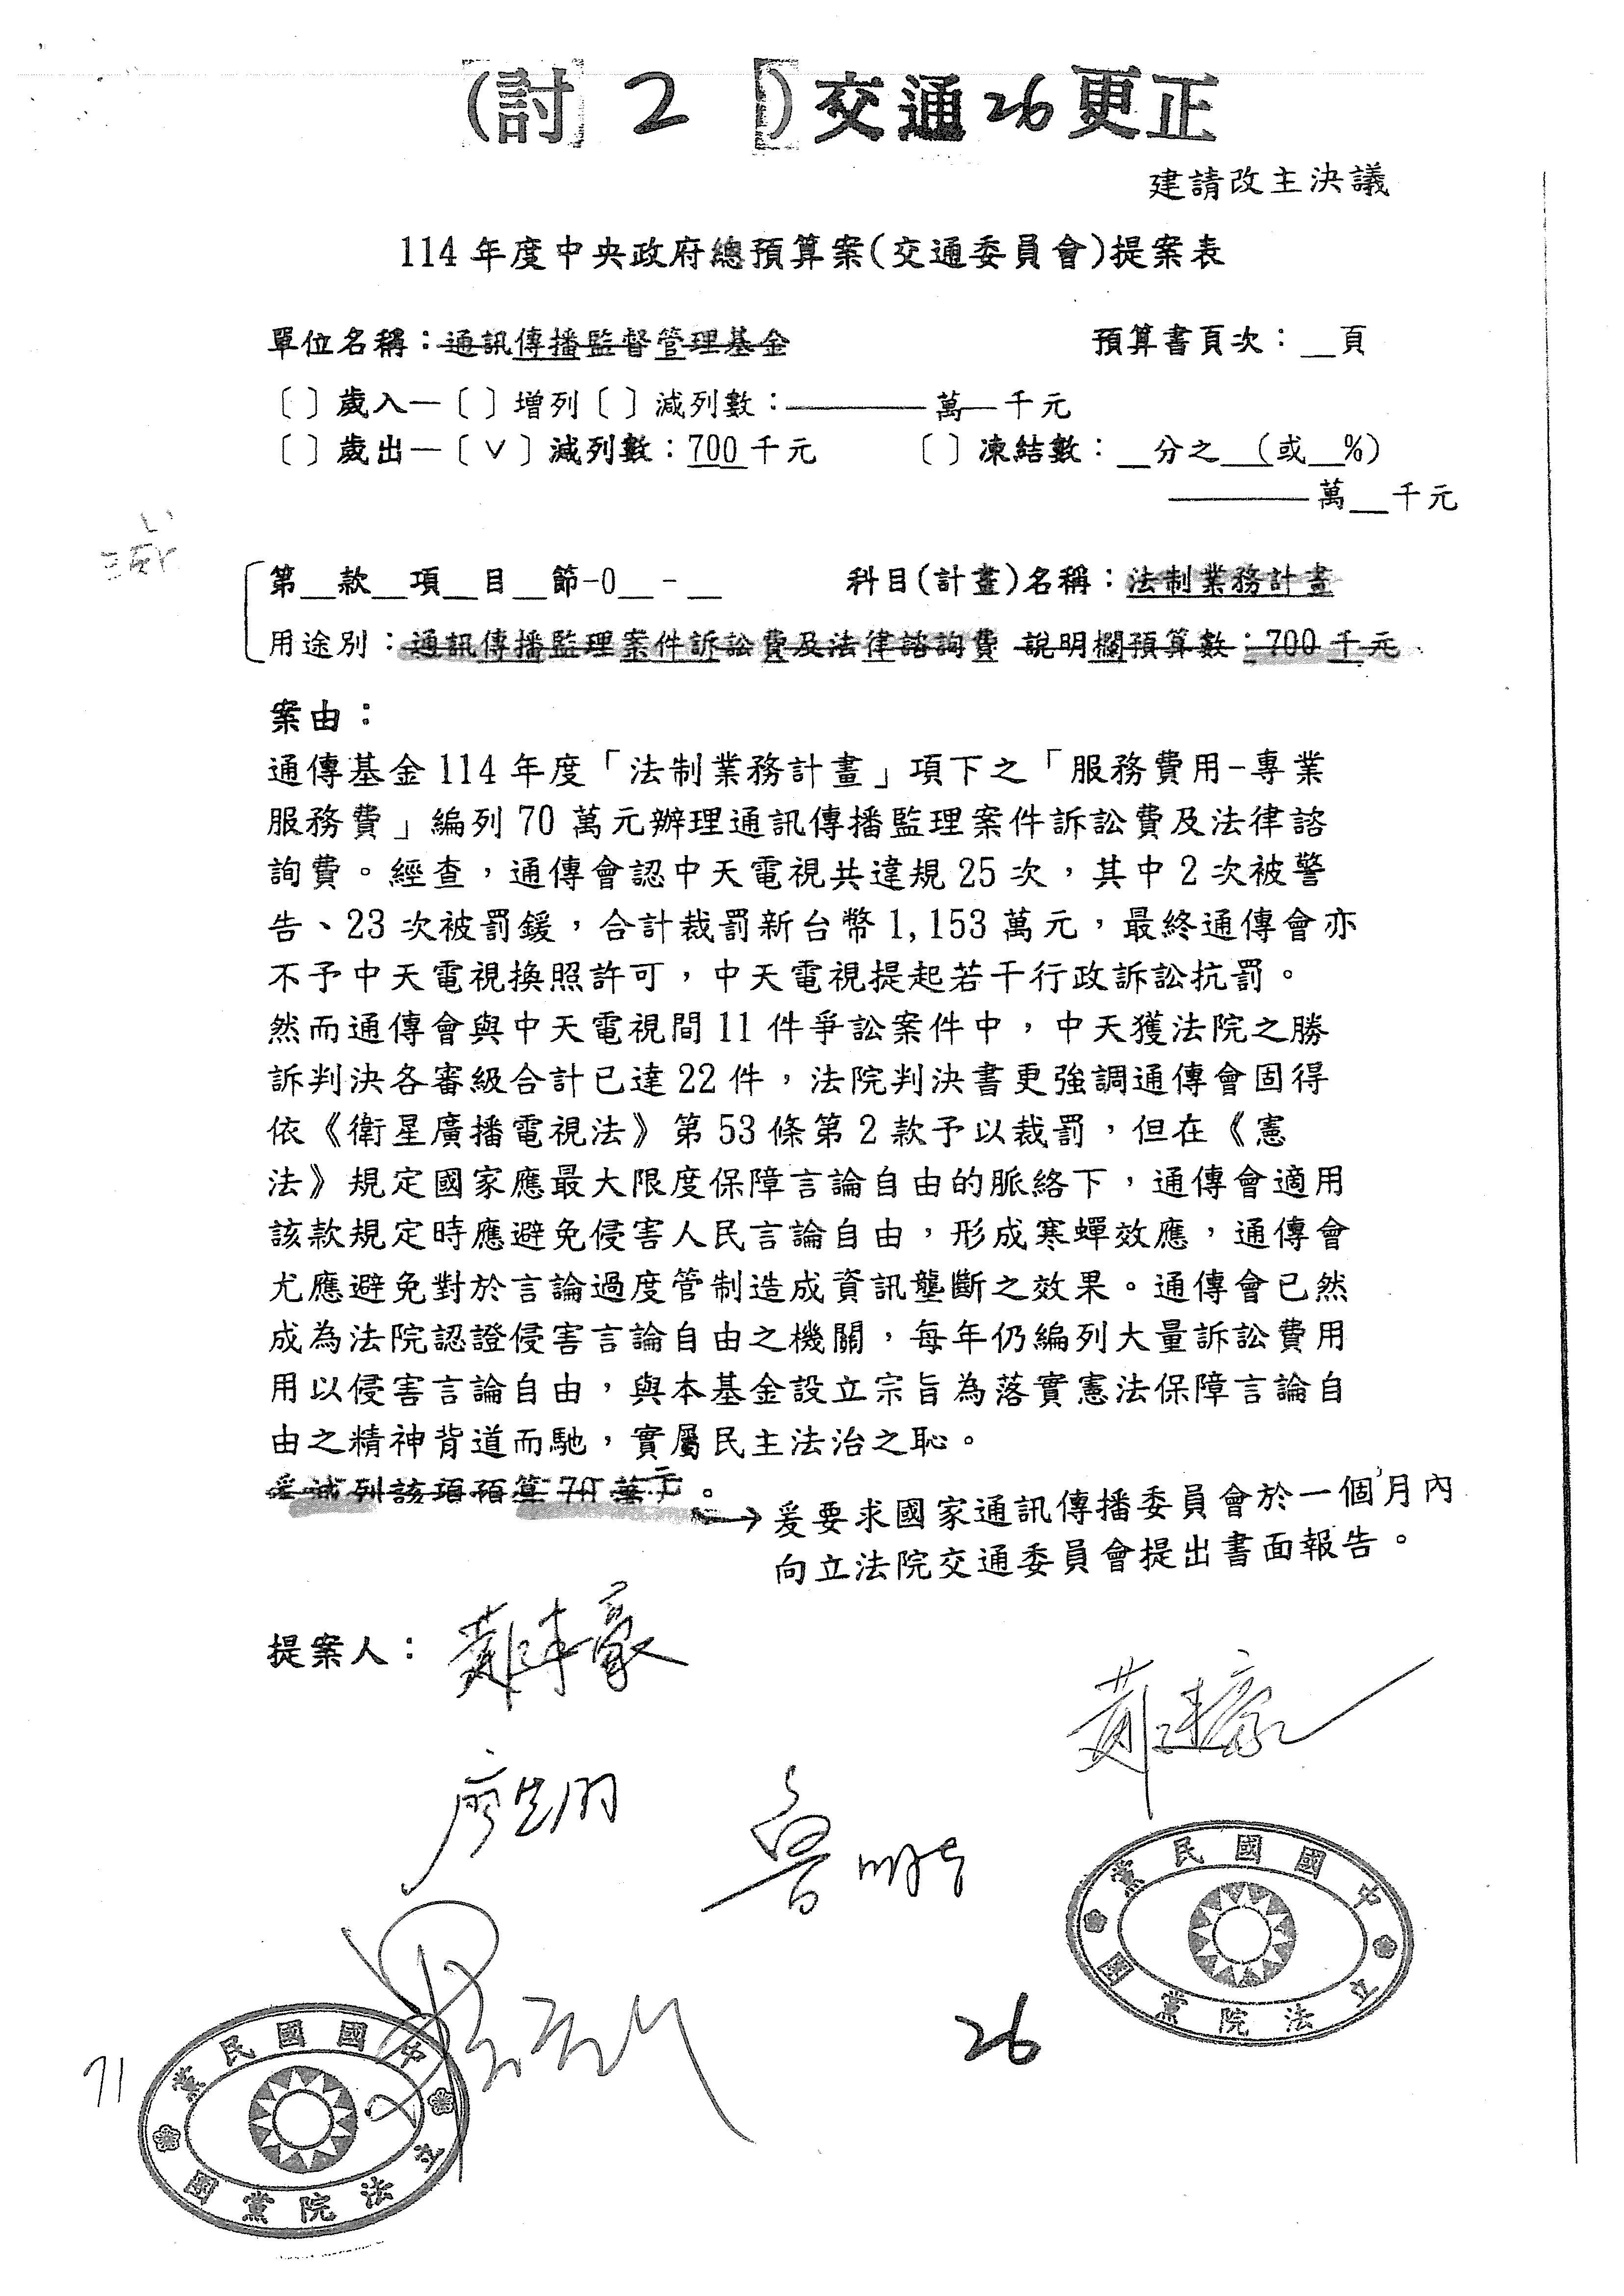 (討 2 )交通26更正
建請改主決議
114年度中央政府總預算案(交通委員會)提案表
單位名稱：通訊傳播監督管理基金 預算書頁次：__頁
〔〕歲入—〔〕增列〔〕減列數：________萬__千元
〔〕歲出—〔∨〕減列數：700千元 〔〕凍結數：__分之__(或__%)
________萬__千元
第__款__項__目__節-0__-__ 科目(計畫)名稱：法制業務計畫
用途別：通訊傳播監理案件訴訟費及法律諮詢費 說明欄預算數：700千元
案由：
通傳基金114年度「法制業務計畫」項下之「服務費用-專業
服務費」編列70萬元辦理通訊傳播監理案件訴訟費及法律諮
詢費。經查，通傳會認中天電視共違規25次，其中2次被警
告、23次被罰鍰，合計裁罰新台幣1,153萬元，最終通傳會亦
不予中天電視換照許可，中天電視提起若干行政訴訟抗罰。
然而通傳會與中天電視間11件爭訟案件中，中天獲法院之勝
訴判決各審級合計已達22件，法院判決書更強調通傳會固得
依《衛星廣播電視法》第53條第2款予以裁罰，但在《憲
法》規定國家應最大限度保障言論自由的脈絡下，通傳會適用
該款規定時應避免侵害人民言論自由，形成寒蟬效應，通傳會
尤應避免對於言論過度管制造成資訊壟斷之效果。通傳會已然
成為法院認證侵害言論自由之機關，每年仍編列大量訴訟費用
用以侵害言論自由，與本基金設立宗旨為落實憲法保障言論自
由之精神背道而馳，實屬民主法治之恥。
爰減列該項預算70萬元。
→爰要求國家通訊傳播委員會於一個月內
向立法院交通委員會提出書面報告。
提案人：
廖先翔
魯明哲
中國國民黨
立法院黨團
26
71
中國國民黨
立法院黨團